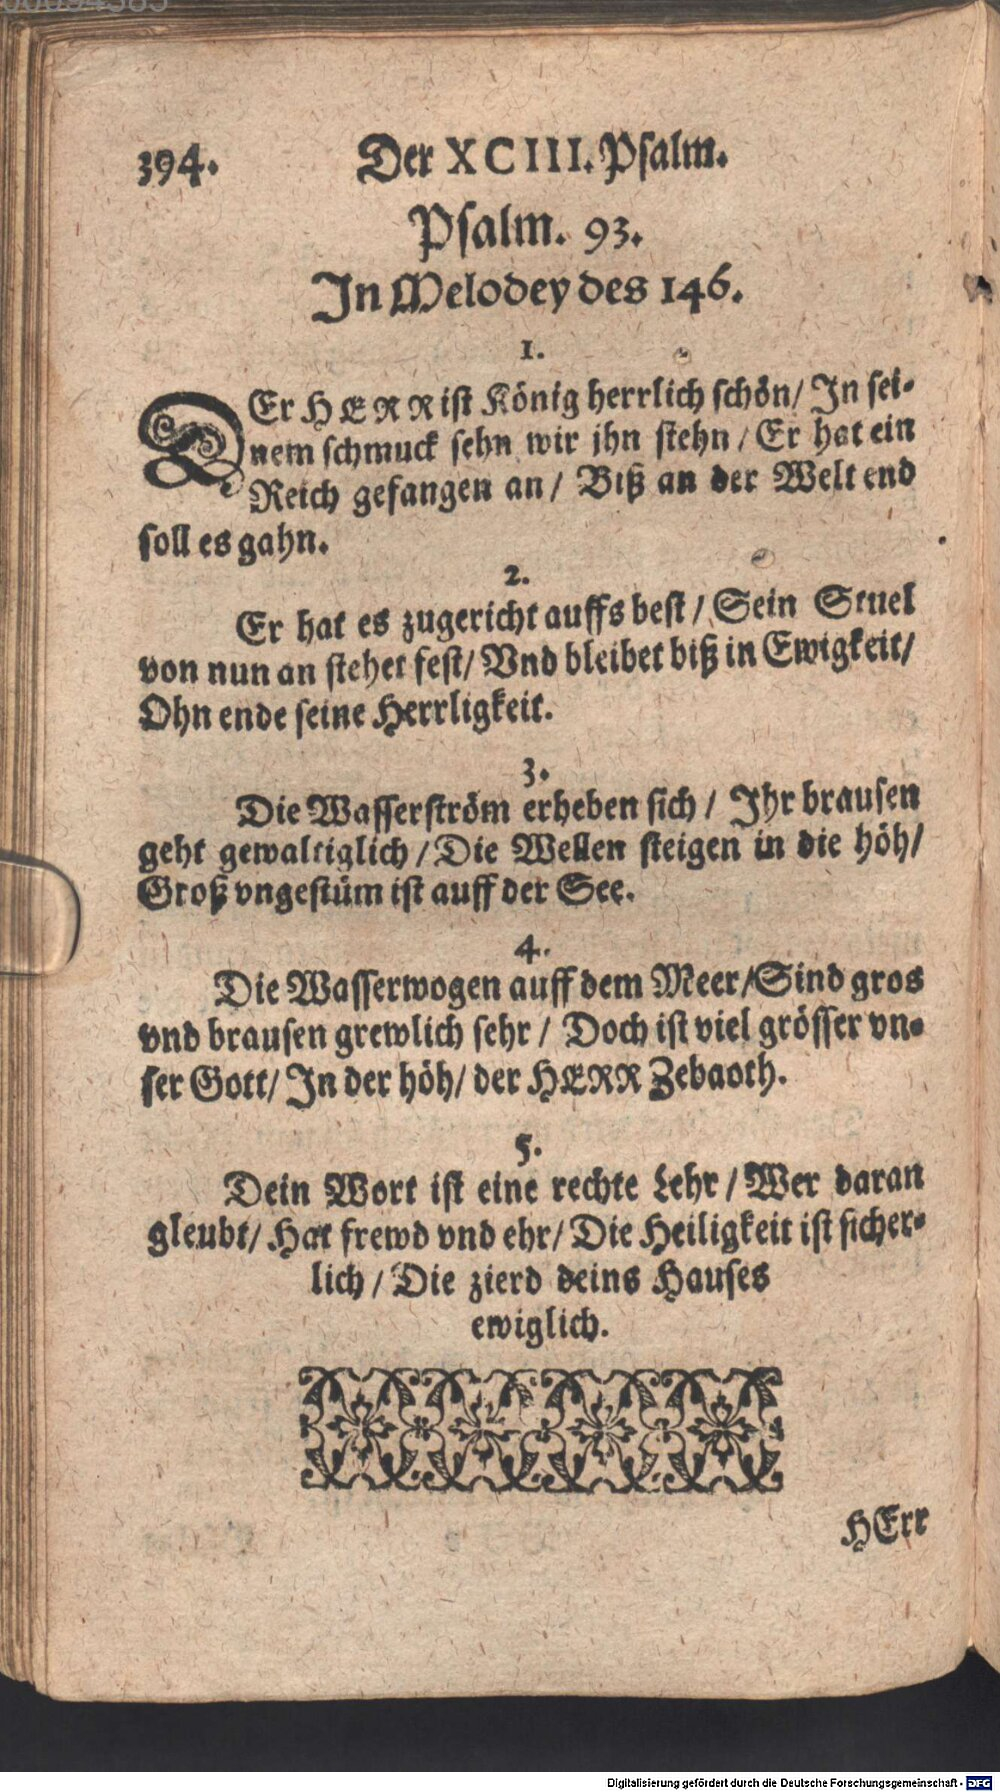 394.
Der XCIII. Psalm.
Psalm. 93.
In Melodey des 146.
1.
DEr HERR ist König herrlich schön/ In sei-
nem schmuck sehn wir jhn stehn / Er hat ein
Reich gefangen an/ Biß an der Welt end
soll es gahn.
2.
Er hat es zugericht auffs best / Sein Stuel
von nun an stehet fest/ Vnd bleibet biß in Ewigkeit/
Ohn ende seine Herrligkeit.
3.
Die Wasserström erheben sich / Ihr brausen
geht gewaltiglich / Die Wellen steigen in die höh/
Groß vngestüm ist auff der See.
4.
Die Wasserwogen auff dem Meer/Sind gros
vnd brausen grewlich sehr / Doch ist viel grösser vn-
ser Gott/ In der höh/ der HERR Zebaoth.
5.
Dein Wort ist eine rechte Lehr / Wer daran
gleubt/ Hat frewd vnd ehr/ Die Heiligkeit ist sicher-
lich / Die zierd deins Hauses
ewiglich.
HErr
Digitalisierung gefördert durch die Deutsche Forschungsgemeinschaft - DFG